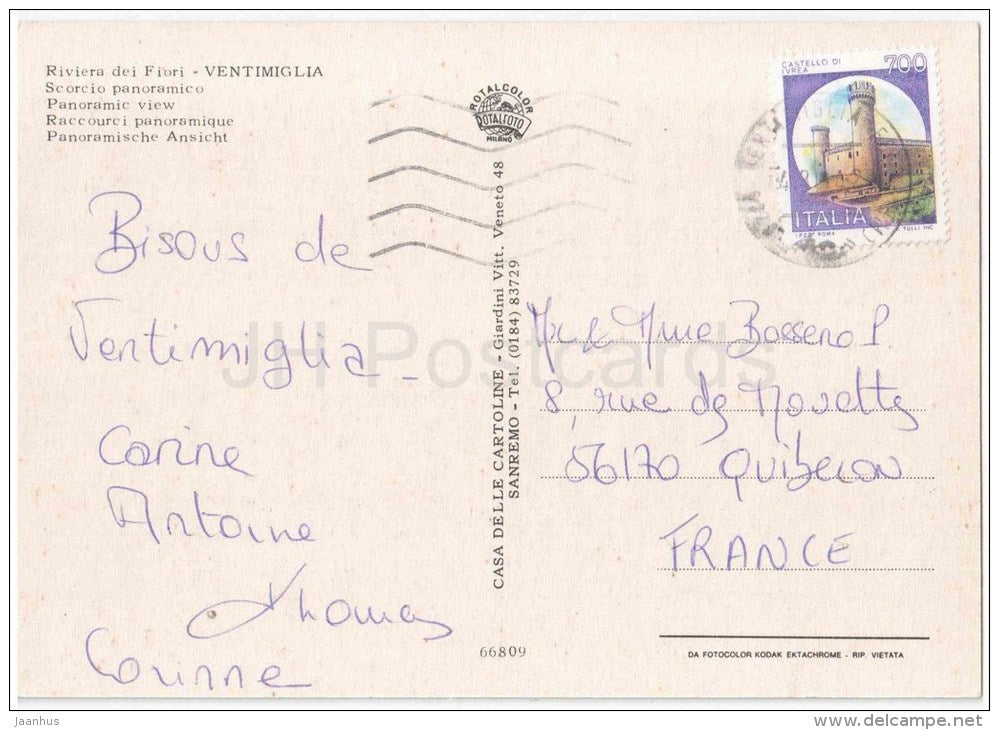 Riviera dei Fiori - VENTIMIGLIA
Scorcio panoramico
Panoramic view
Raccourci panoramique
Panoramische Ansicht
ROTALCOLOR
ROTALFOTO
MILANO
CASTELLO DI
IVREA
700
ITALIA
I.P.Z.S. ROMA
TULLI INC.
Bisous de
Ventimiglia -
Carine
Antoine
Thomas
Corinne
CASA DELLE CARTOLINE - Giardini Vitt. Veneto 48
SANREMO - Tel. (0184) 83729
Mr & Mme Bosseno P.
8 rue de
56170 Quiberon
FRANCE
66809
DA FOTOCOLOR KODAK EKTACHROME - RIP. VIETATA
JH Postcards
jaanhus
www.delcampe.net